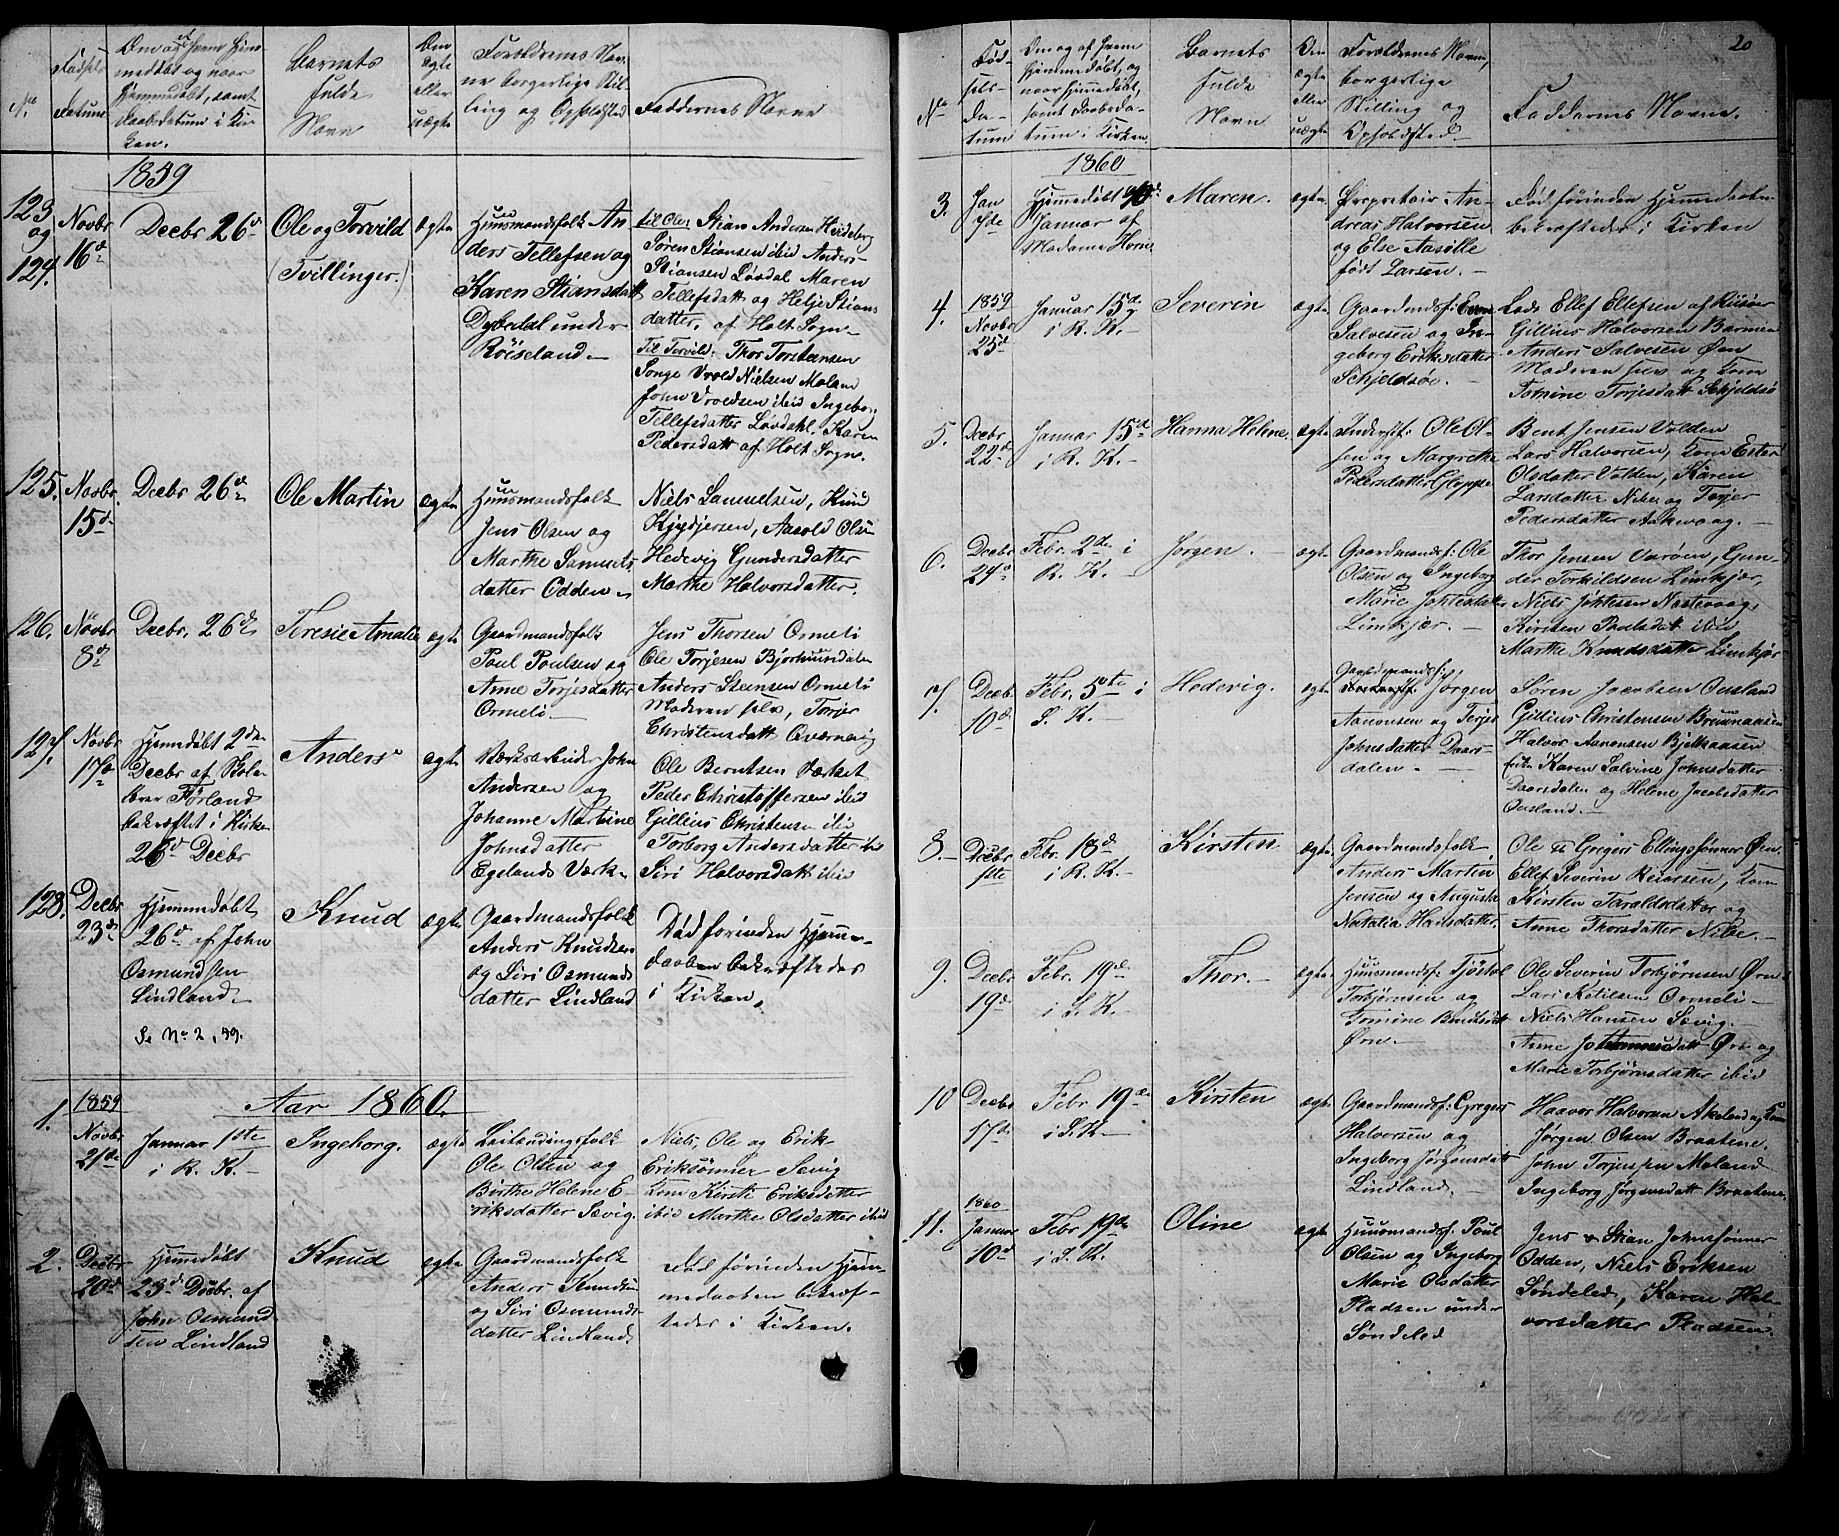 No.
Fødsels
Datum
Om og af hvem Hjem-
medøbt og naar
Hjemmedøbt, samt
Daabsdatum i Kir-
ken.
Barnets
fulde
Navn
Om
ægte
eller
uægte
Forældrenes Nav-
ne borgerlige Stil-
ling og Opholdsted
Faddernes Navne
1859
123
og
124.
Novbr
16d
Decbr 26d
Ole og Torvild
(Tvillinger.)
ægte
Huusmandsfolk An-
ders Tellefsen og
Karen Stiansdatt
Dybedal under
Röiseland.
til Ole: Stian Andersen Heideberg
Sören Stiansen ibid Anders
Stiansen Løvdal Maren
Tellefsdatt og Helje Stians
datter. af Holt Sogn
Til Torvild: Thor Torstensen
Songe Vrold Nielsen Molam
John Vroldsen ibid Ingeborg
Tellefsdatter Løvdahl, Karen
Pedersdatt af Holt Sogn.
125.
Novbr
15d
Decbr 26d
Ole Martin
ægte
Huusmandsfolk
Jens Olsen og
Marthe Samuels
datter Odden
Niels Samuelsen, Knud
Aasold Olsen
Hedevig Gundersdatter
Marthe Halvorsdatter.
126.
Novbr
8d
Decbr. 26de
Teresie Amalie
ægte
Gaardmandsfolk
Poul Poulsen og
Anne Torjesdatter
Ormeli.
Jens Thorsen Ormeli
Ole Torjesen Bjorhuusdalen
Anders Steensen Ormeli
Moderen selv, Torjer
Christensdatt Aværnevig
127.
Novbr
17d
Hjemmedøbt 2den
Decbr af Skole-
lærer Førland
bekræftet i Kirken
26d Decbr
Anders
ægte
Værksarbeider John
Andersen og
Johanne Martine
Johnsdatter
Egelands Værk
Ole Berntsen Værket
Peder Christoffersen ibid
Gillius Christensen ibid
Torborg Andersdatter ibid
Siri Halvorsdatt ibid
128.
Decbr
23d
Hjemmedøbt
26d af John
Osmundsen
Lindland.
Se No 2, 59.
Knud
ægte
Gaardmandsfolk
Anders Knudsen
og Siri Osmunds
datter Lindland
Død forinden Hjemme-
daaben bekræftedes
i Kirken.
Aar 1860.
1.
1859
Novbr
21de
Januar 1ste
i R. K.
Ingeborg.
ægte
Leilændingsfolk
Ole Olsen og
Birthe Helene E-
riksdatter Sævig.
Niels, Ole og Erik
Erikssønner Sævig
Kone Kirsti Eriksdatter
ibid Marthe Olsdatter ibid
2.
Decbr
20d
Hjemmedøbt
23d Decbr. af
John Osmund
sen Lindland
Knud
ægte
Gaardmandsfolk
Anders Knudsen
og Siri Osmunds-
datter Lindland.
Død forinden Hjem-
medaaben bekræf-
tedes i Kirken.
20
No
Fød-
sels-
da-
tum
Om og af hvem
hjemmedøbt, og
naar hjemmedøbt,
samt Daabsda-
tum i Kirken.
Barnets
fulde
Navn
Om
ægte
eller
uægte
Forældrenes Navne,
borgerlige
Stilling og
Opholdsted
Faddernes Navne.
1860
3.
Jan
Hjemmedøbt
Januar af
Madame Horne
Maren.
ægte
Proprietair An-
dreas Halvorsen
og Else Aasille
født Larsen.
Død forinden Hjemmedaaben
bekræftedes i Kirken
4.
1859
Novbr
25d
Januar 15d
i R. K.
Severin
ægte
Gaardmandsf: Even
Salvesen og In-
geborg Eriksdatter
Schjeldsøe.
Lods Ellef Ellefsen af Riisøer
Gillius Halvorsen Barmen
Anders Salvesen Øen
Moderen selv og Kone
Tomine Torjesdatt Schjeldsø
5.
Decbr
22d
Januar 15d
i R. K.
Hanna Helene.
ægte
Inderstf: Ole Ol-
sen og Margrethe
Pedersdatter Gloppe
Bent Jensen Volden
Lars Halvorsen, Kone Ester
Olsdatter Volden, Karen
Larsdatter Nibe og Torjer
Pedersdatter Aakvaag.
6.
Decbr
24d
Febr. 2de i
R. K.
Jörgen.
ægte
Gaardmandsf: Ole
Olsen og Ingeborg
Marie Johtesdatter
Limkjær.
Thor Jensen Varöen, Gun-
der Torkildsen Limkjær,
Niels Johtesen Nastevaag,
Kirsten Poulsdatt ibid
Marthe Knudsdatter Limkjør
7.
Decbr
10d
Febr. 5te i
S. K.
Hedevig.
ægte
Jörgen
Aanonsen og Terjer
Johnsdatter Daars-
dalen.
Sören Jacobsen Ousland
Gillius Christensen Bruunaasen
Halvor Aanonsen Bjelkaasen
Karen Salvine Johnsdatter
Daarsdalen og Helene Jacobsdatter
Ousland.
8.
Decbr
5te
Febr. 18d
i R. K.
Kirsten
ægte
Gaardmandsfolk
Anders Martin
Jensen og Augusta
Natalia Hansdatter
Ole & Grigers Ellingsönner Øen
Ellef Severin Reiersen, Kone
Kirsten Taraldsdatter og
Anne Thorsdatter Nibe.
9.
Decbr
19d
Febr. 19d
i S. K.
Thor.
ægte
Huusmandsf: Tjöstol
Torbjörnsen og
Tomine Bendtsdatt
Ørn.
Ole Severin Torbjörnsen Ørn
Lars Ketilsen Ormeli
Niels Hansen Sævig.
Anne Johannesdatt Ørn og
Marie Torbjörnsdatter ibid
10
Decbr
17d
Febr 19de
i S. K.
Kirsten
ægte
Gaardmandsf: Gregers
Halvorsen og
Ingeborg Jörgensdatt
Lindland.
Haavor Halvorsen Akeland og Kone
Jörgen Olsen Braatene
John Torjussen Moland
Ingeborg Jörgensdatt Braatene.
11.
1860
Januar
10d
Febr 19de
i S. K.
Oline
ægte
Huusmandsf. Poul
Olsen og Ingeborg
Marie Olsdatter
Pladsen under
Söndeled
Jens & Stian Johnssönner
Odden, Niels Eriksen
Söndeled, Karen Hal-
vorsdatter Pladsen.